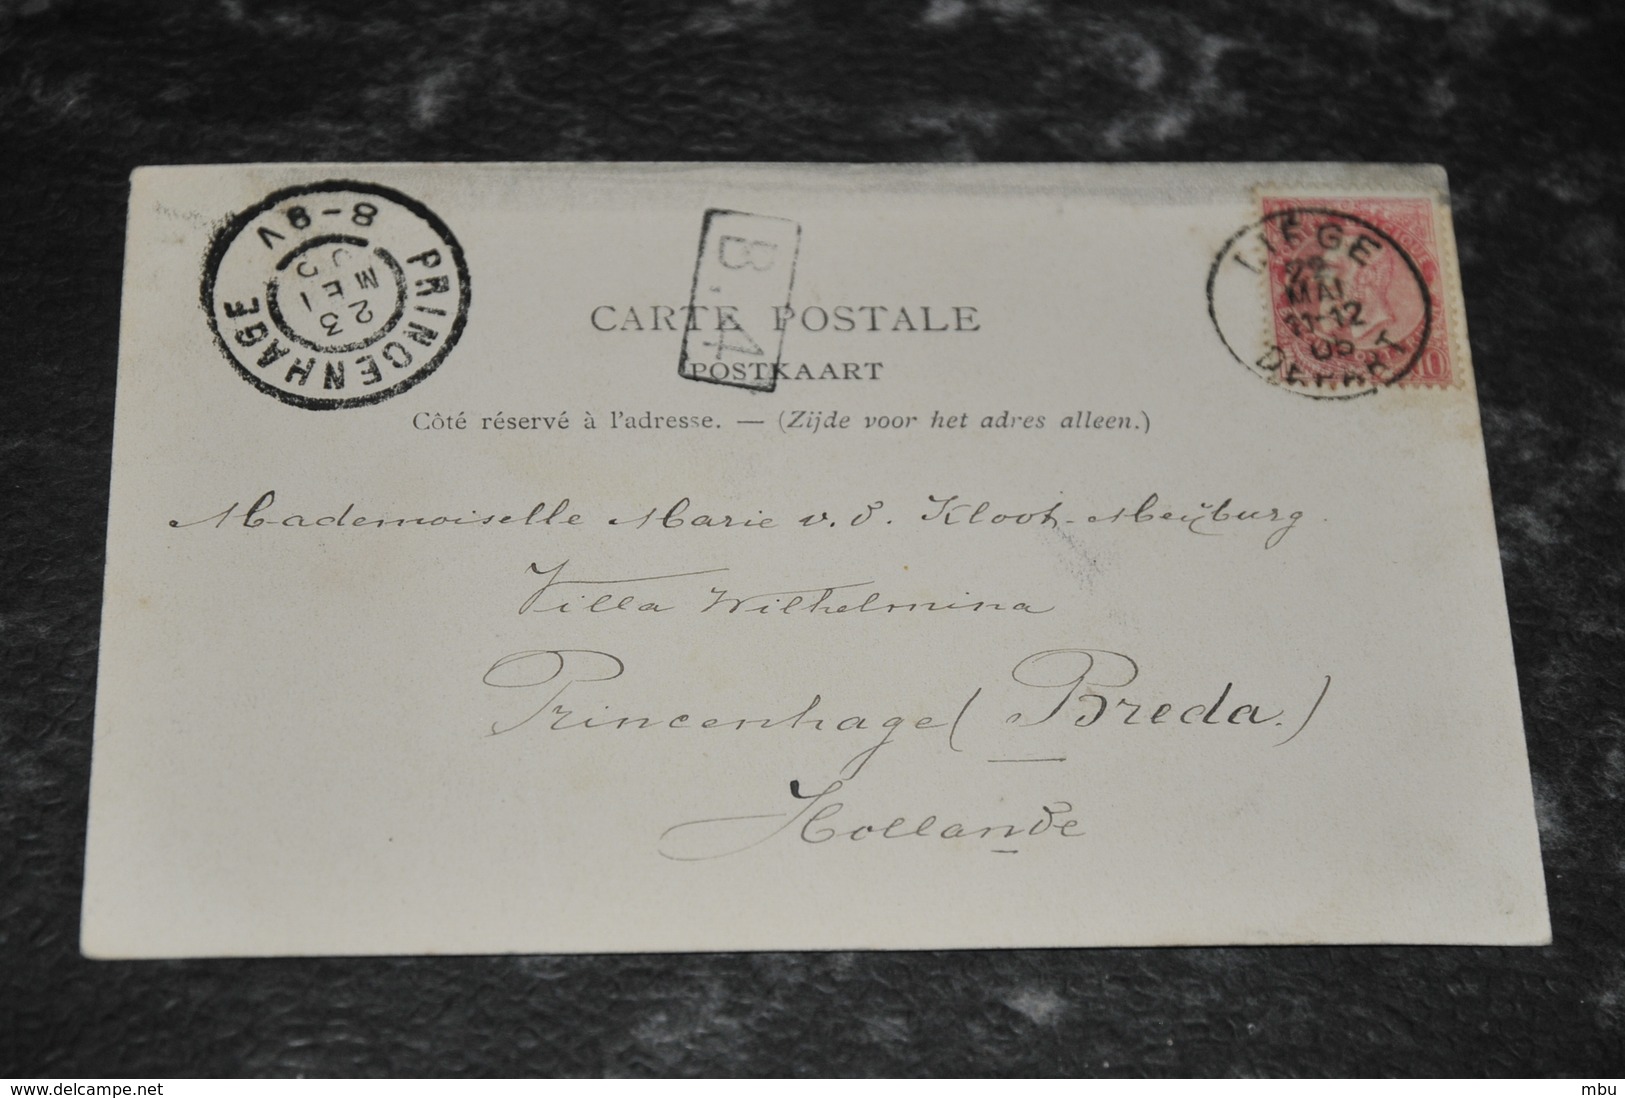 PRINCENHAGE
8-9V
23 MEI
05
B. 4
LIÉGE
22
MAI
11-12
05
DÉPART
10
CARTE POSTALE
POSTKAART
Côté réservé à l'adresse. — (Zijde voor het adres alleen.)
Mademoiselle Marie v. d. Kloot-Meijburg.
Villa Wilhelmina
Princenhage (Breda.)
Hollande
www.delcampe.net
mbu